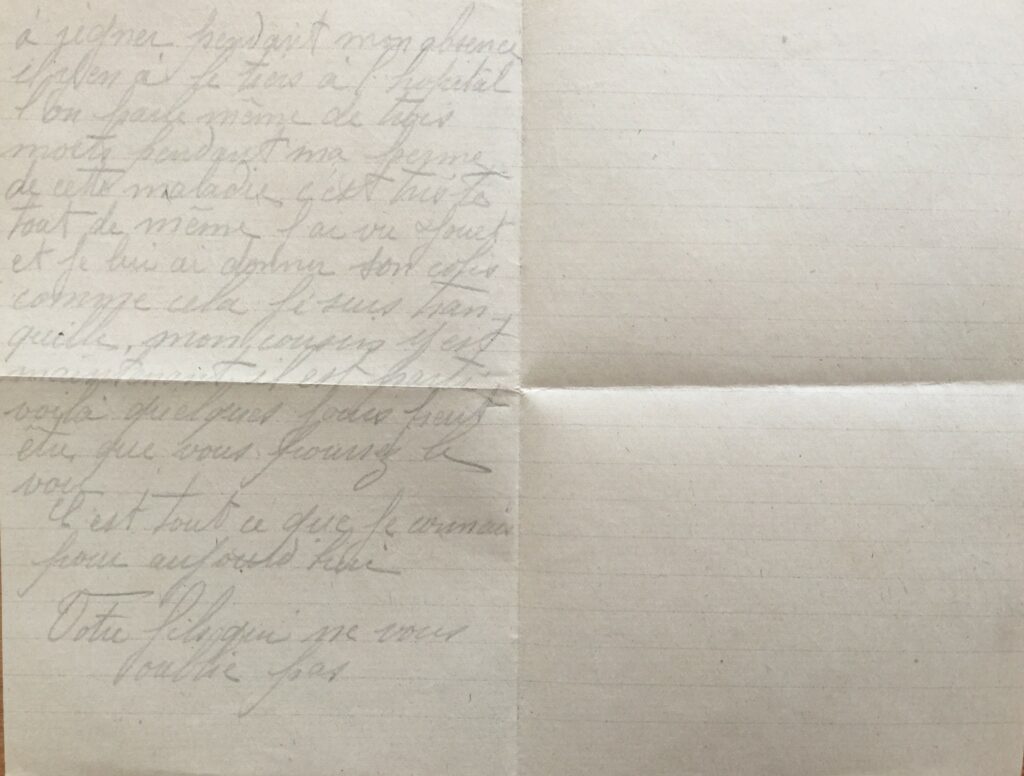 à régner pendant mon absence
il y en a le tiers à l'hopital
l'on parle même de trois
morts pendant ma perme
de cette maladie c'est triste
tout de même j'ai vu
et je lui ai donner son colis
comme cela je suis tran-
quille, mon cousin y est
maintenant il est
voilà quelques jours peut
être que vous pourrez le
voir
C'est tout ce que je connais
pour aujourd'hui
Votre fils qui ne vous
oublie pas